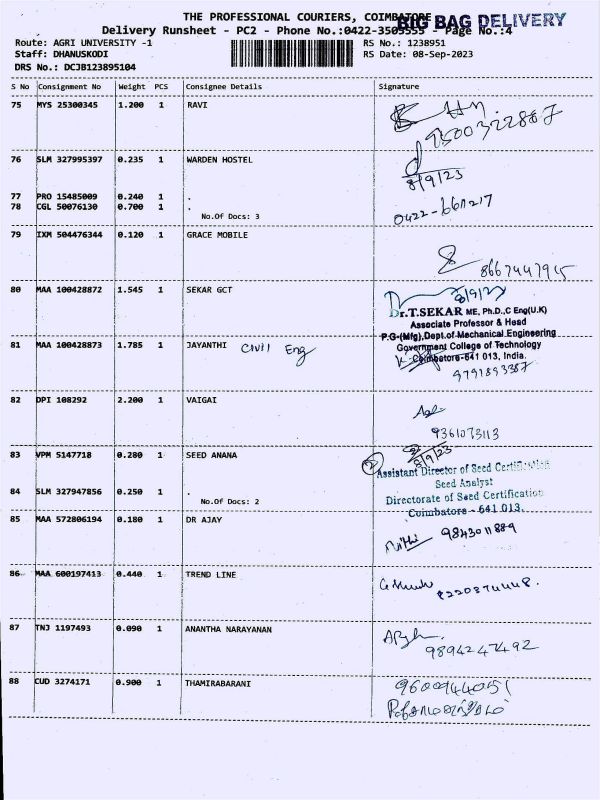 THE PROFESSIONAL COURIERS, COIMBATORE
BIG BAG DELIVERY
Delivery Runsheet - PC2 - Phone No.:0422-3505555 - Page No.:4
Route: AGRI UNIVERSITY -1
RS No.: 1238951
Staff: DHANUSKODI
RS Date: 08-Sep-2023
DRS No.: DCJB123895104
S No Consignment No Weight PCS Consignee Details Signature
75 MYS 25300345 1.200 1 RAVI
76 SLM 327995397 0.235 1 WARDEN HOSTEL
8/9/23
77 PRO 15485009 0.240 1 .
78 CGL 50076130 0.700 1 .
0422-6611217
No.Of Docs: 3
79 IXM 504476344 0.120 1 GRACE MOBILE
8667447945
80 MAA 100428872 1.545 1 SEKAR GCT
8/9/23
Dr.T.SEKAR ME, Ph.D.,C Eng(U.K)
Associate Professor & Head
P.G-(Mfg),Dept.of Mechanical Engineering
Government College of Technology
Coimbatore-641 013, India.
81 MAA 100428873 1.785 1 JAYANTHI Civil Eng
9791893387
82 DPI 108292 2.200 1 VAIGAI
9361073113
83 VPM 5147718 0.280 1 SEED ANANA
2
8/9/23
Assistant Director of Seed Certification
Seed Analyst
Directorate of Seed Certification
Coimbatore - 641 013.
84 SLM 327947856 0.250 1 .
No.Of Docs: 2
85 MAA 572806194 0.180 1 DR AJAY
9843011889
86 MAA 600197413 0.440 1 TREND LINE
8220874448.
87 TNJ 1197493 0.090 1 ANANTHA NARAYANAN
9894247492
88 CUD 3274171 0.900 1 THAMIRABARANI
9600944051